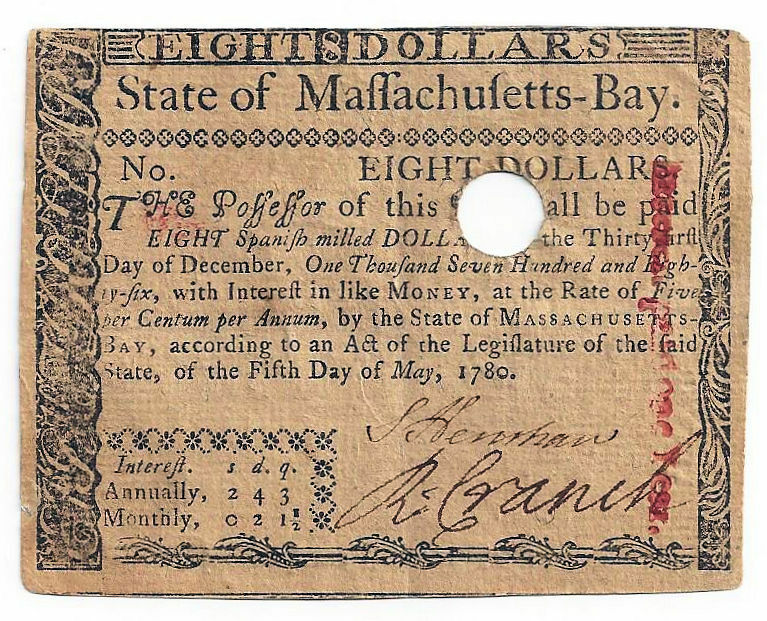 EIGHT 8 DOLLARS
State of Maſſachuſetts-Bay.
No. EIGHT DOLLARS
THE Poſſeſſor of this ſhall be paid
EIGHT Spaniſh milled DOLLA the Thirty-firſt
Day of December, One Thouſand Seven Hundred and Eigh-
ty-ſix, with Intereſt in like MONEY, at the Rate of Five
per Centum per Annum, by the State of MASSACHUSETTS-
BAY, according to an Act of the Legiſlature of the ſaid
State, of the Fifth Day of May, 1780.
S Henshaw
R: Cranch
Intereſt. s d. q.
Annually, 2 4 3
Monthly, 0 2 1½
Year.